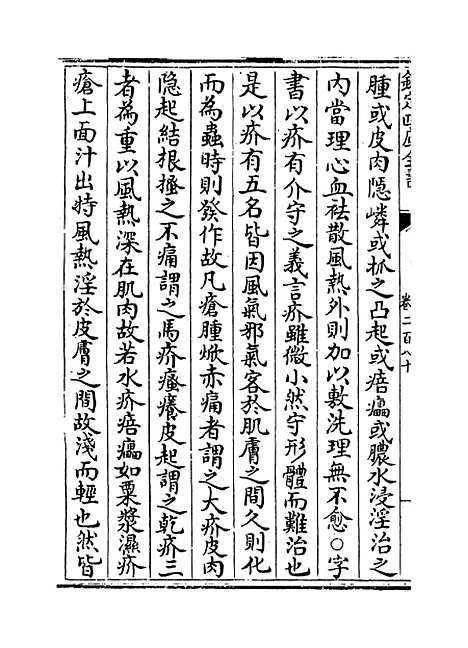 欽定四庫全書
卷二百八十
腫或皮肉隱嶙或抓之凸起或㾦㿔或膿水浸淫治之
内當理心血祛散風熱外則加以敷洗理無不愈○字
書以疥有介守之義言疥雖微小然守形體而難治也
是以疥有五名皆因風氣邪氣客於肌膚之間久則化
而為蟲時則發作故凡瘡腫焮赤痛者謂之大疥皮肉
隐起結根搔之不痛謂之馬疥瘙癢皮起謂之乾疥三
者為重以風熱深在肌肉故若水疥㾦㿔如粟漿濕疥
瘡上面汁出特風熱淫於皮膚之間故淺而輕也然皆